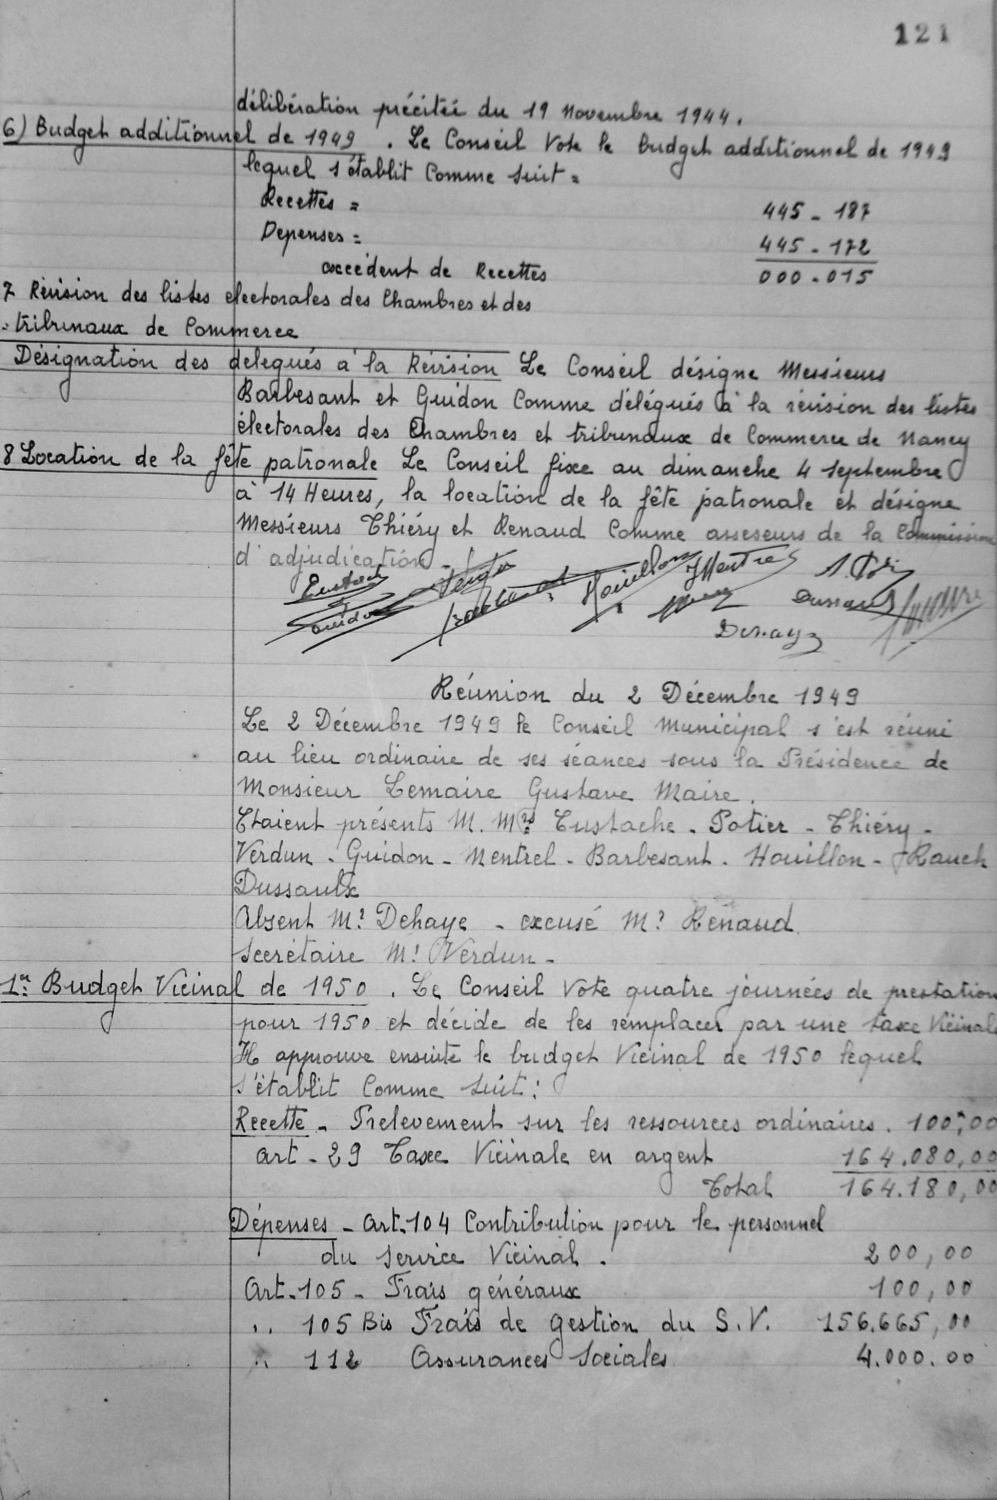 121
délibération précitée du 19 novembre 1944.
6) Budget additionnel de 1949. Le Conseil Vote le budget additionnel de 1949
lequel s'établit Comme suit =
Recettes = 445-187
Depenses = 445-172
excédent de Recettes 000-015
7 Révision des listes électorales des Chambres et des
tribunaux de Commerce
Désignation des delegués à la Révision Le Conseil désigne Messieurs
Barbesant et Guidon Comme délégués à la révision des listes
électorales des Chambres et tribunaux de Commerce de Nancy
8 Location de la fête patronale Le Conseil fixe au dimanche 4 septembre
à 14 Heures, la location de la fête patronale et désigne
Messieurs Thiéry et Renaud Comme asseseurs de la Commission
d'adjudication.
Eustache Houillon Mentrel
Guidon Barbesant Dussaulx
Dehaye
Réunion du 2 Décembre 1949
Le 2 Décembre 1949 le Conseil Municipal s'est réuni
au lieu ordinaire de ses séances sous la Présidence de
Monsieur Lemaire Gustave Maire.
Etaient présents M. Mrs Eustache - Potier - Thiéry -
Verdun - Guidon - Mentrel - Barbesant - Houillon - Rauch
Dussaulx
Absent Mr Dehaye - excusé Mr Renaud
Secrétaire Mr Verdun -
1er Budget Vicinal de 1950. Le Conseil Vote quatre journées de prestation
pour 1950 et décide de les remplacer par une taxe Vicinale
Il approuve ensuite le budget Vicinal de 1950 lequel
s'établit Comme suit :
Recette - Prelevement sur les ressources ordinaires. 100,00
art - 29 Taxe Vicinale en argent 164.080,00
Total 164.180,00
Dépenses - art. 104 Contribution pour le personnel
du service Vicinal. 200,00
Art. 105 - Frais généraux 100,00
,, 105 Bis Frais de gestion du S.V. 156.665,00
,, 112 Assurances Sociales 4.000.00